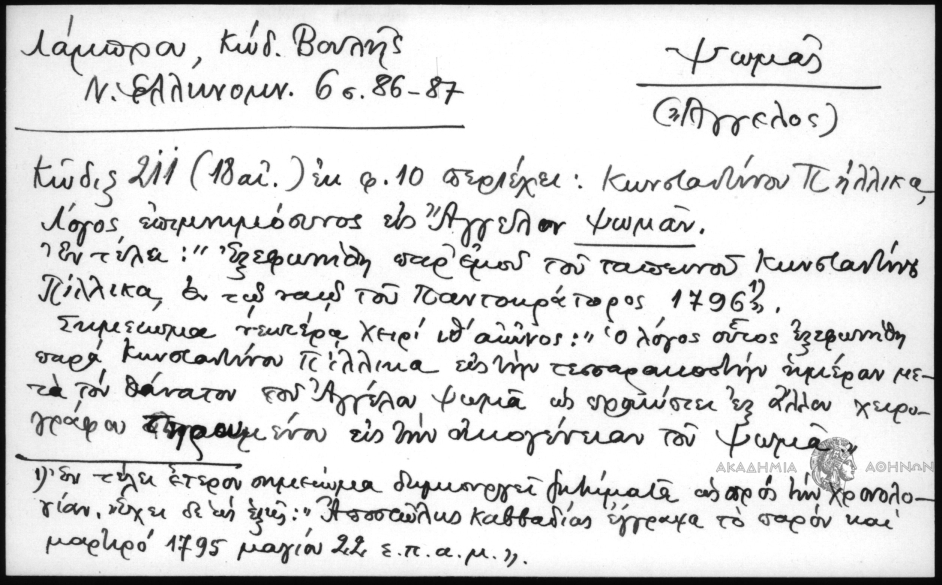 Λάμπρου, Κώδ. Βουλῆς
Ν. Ἑλληνομν. 6 σ. 86-87
Ψωμᾶς
(Ἄγγελος)
Κῶδιξ 211 (18 αἰ.) ἐκ φ. 10 περιέχει: Κωνσταντίνου Πήλλικα,
Λόγος ἐπιμνημόσυνος εἰς Ἄγγελον Ψωμᾶν.
Ἐν τέλει: "Ἐξεφωνήθη παρ' ἐμοῦ τοῦ ταπεινοῦ Κωνσταντίνου
Πίλλικα, ἐν τῷ ναῷ τοῦ Παντοκράτορος 1796"1).
Σημείωμα νεωτέρᾳ χειρί ιθ' αἰῶνος: "Ὁ λόγος οὗτος ἐξεφωνήθη
παρά Κωνσταντίνου Πίλλικα εἰς τήν τεσσαρακοστήν ἡμέραν με-
τά τόν θάνατον τοῦ Ἀγγέλου Ψωμᾶ ὡς προκύπτει ἐξ ἄλλου χειρο-
γράφου τηρουμένου εἰς τήν οἰκογένειαν τοῦ Ψωμᾶ"
ΑΚΑΔΗΜΙΑ ΑΘΗΝΩΝ
1) Ἐν τέλει ἕτερον σημείωμα δημιουργεῖ ζητήματα ὡς πρός τήν χρονολο-
γίαν. ἔχει δέ ὡς ἑξῆς: "Ἀποστόλης Καββαδίας ἔγραψα τό παρόν καί
μαρτηρό 1795 μαγίου 22 ε.π.α.μ.".